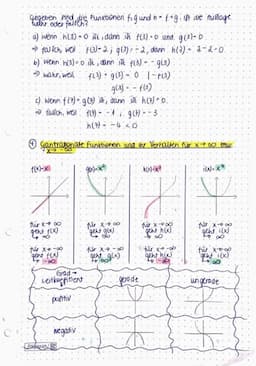 Gegeben sind die Funktionen f, g und h = f + g. Ist die Aussage
oder falsch?
a) Wenn h(2) = 0 ist, dann ist f(2) = 0 und g(2) = 0
→ falsch, weil f(2) = 2, g(2) = -2, dann h(2) = 2-2=0
b) Wenn h(3) = 0 ist, dann ist f(3) = -g(3)
→ wahr, weil f(3) + g(3) = 0 |-f(3)
g(3) = -f(3)
c) Wenn f(7) = g(7) ist, dann ist h(7) = 0.
→ falsch, weil f(7) = -1, g(7) = -3
h(7) = -4 < 0
Ganzrationale Funktionen und ihr Verhalten für x→∞ bzw.
x→-∞
f(x)=x g(x)=x² h(x)=x³ i(x)=x⁴
für x→∞ für x→∞ für x→∞ für x→∞
geht f(x) geht g(x) geht h(x) geht i(x)
→∞ →∞ →∞ →∞
für x→-∞ für x→-∞ für x→-∞ für x→-∞
geht f(x) geht g(x) geht h(x) geht i(x)
→-∞ →∞ →-∞ →∞
Grad →
Leitkoeffizient gerade ungerade
positiv
negativ